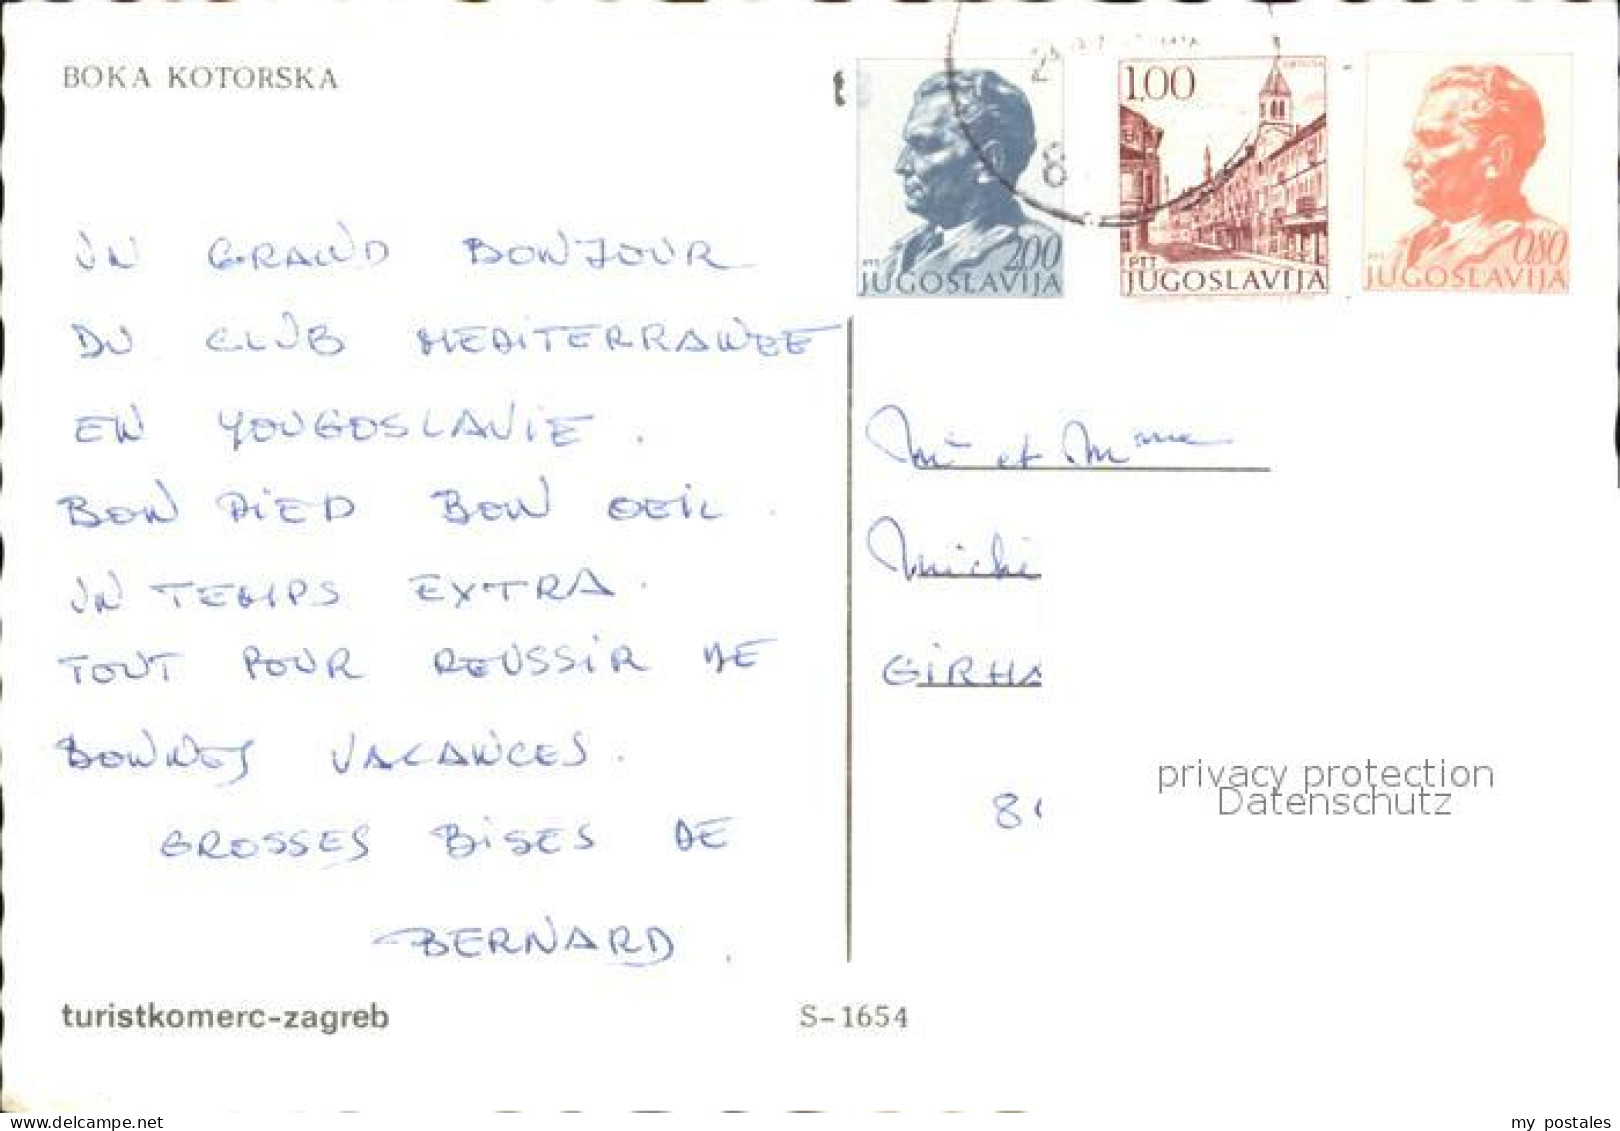 BOKA KOTORSKA
PTT 2.00
JUGOSLAVIJA
1.00
PTT
JUGOSLAVIJA
PTT 0.80
JUGOSLAVIJA
8
UN GRAND BONJOUR
DU CLUB MEDITERRANEE
EN YOUGOSLAVIE.
BON PIED BON OEIL.
UN TEMPS EXTRA.
TOUT POUR REUSSIR DE
BONNES VACANCES.
GROSSES BISES DE
BERNARD.
Mr et Mme
Miche
GIRHA
8
privacy protection
Datenschutz
turistkomerc-zagreb
S-1654
my postales